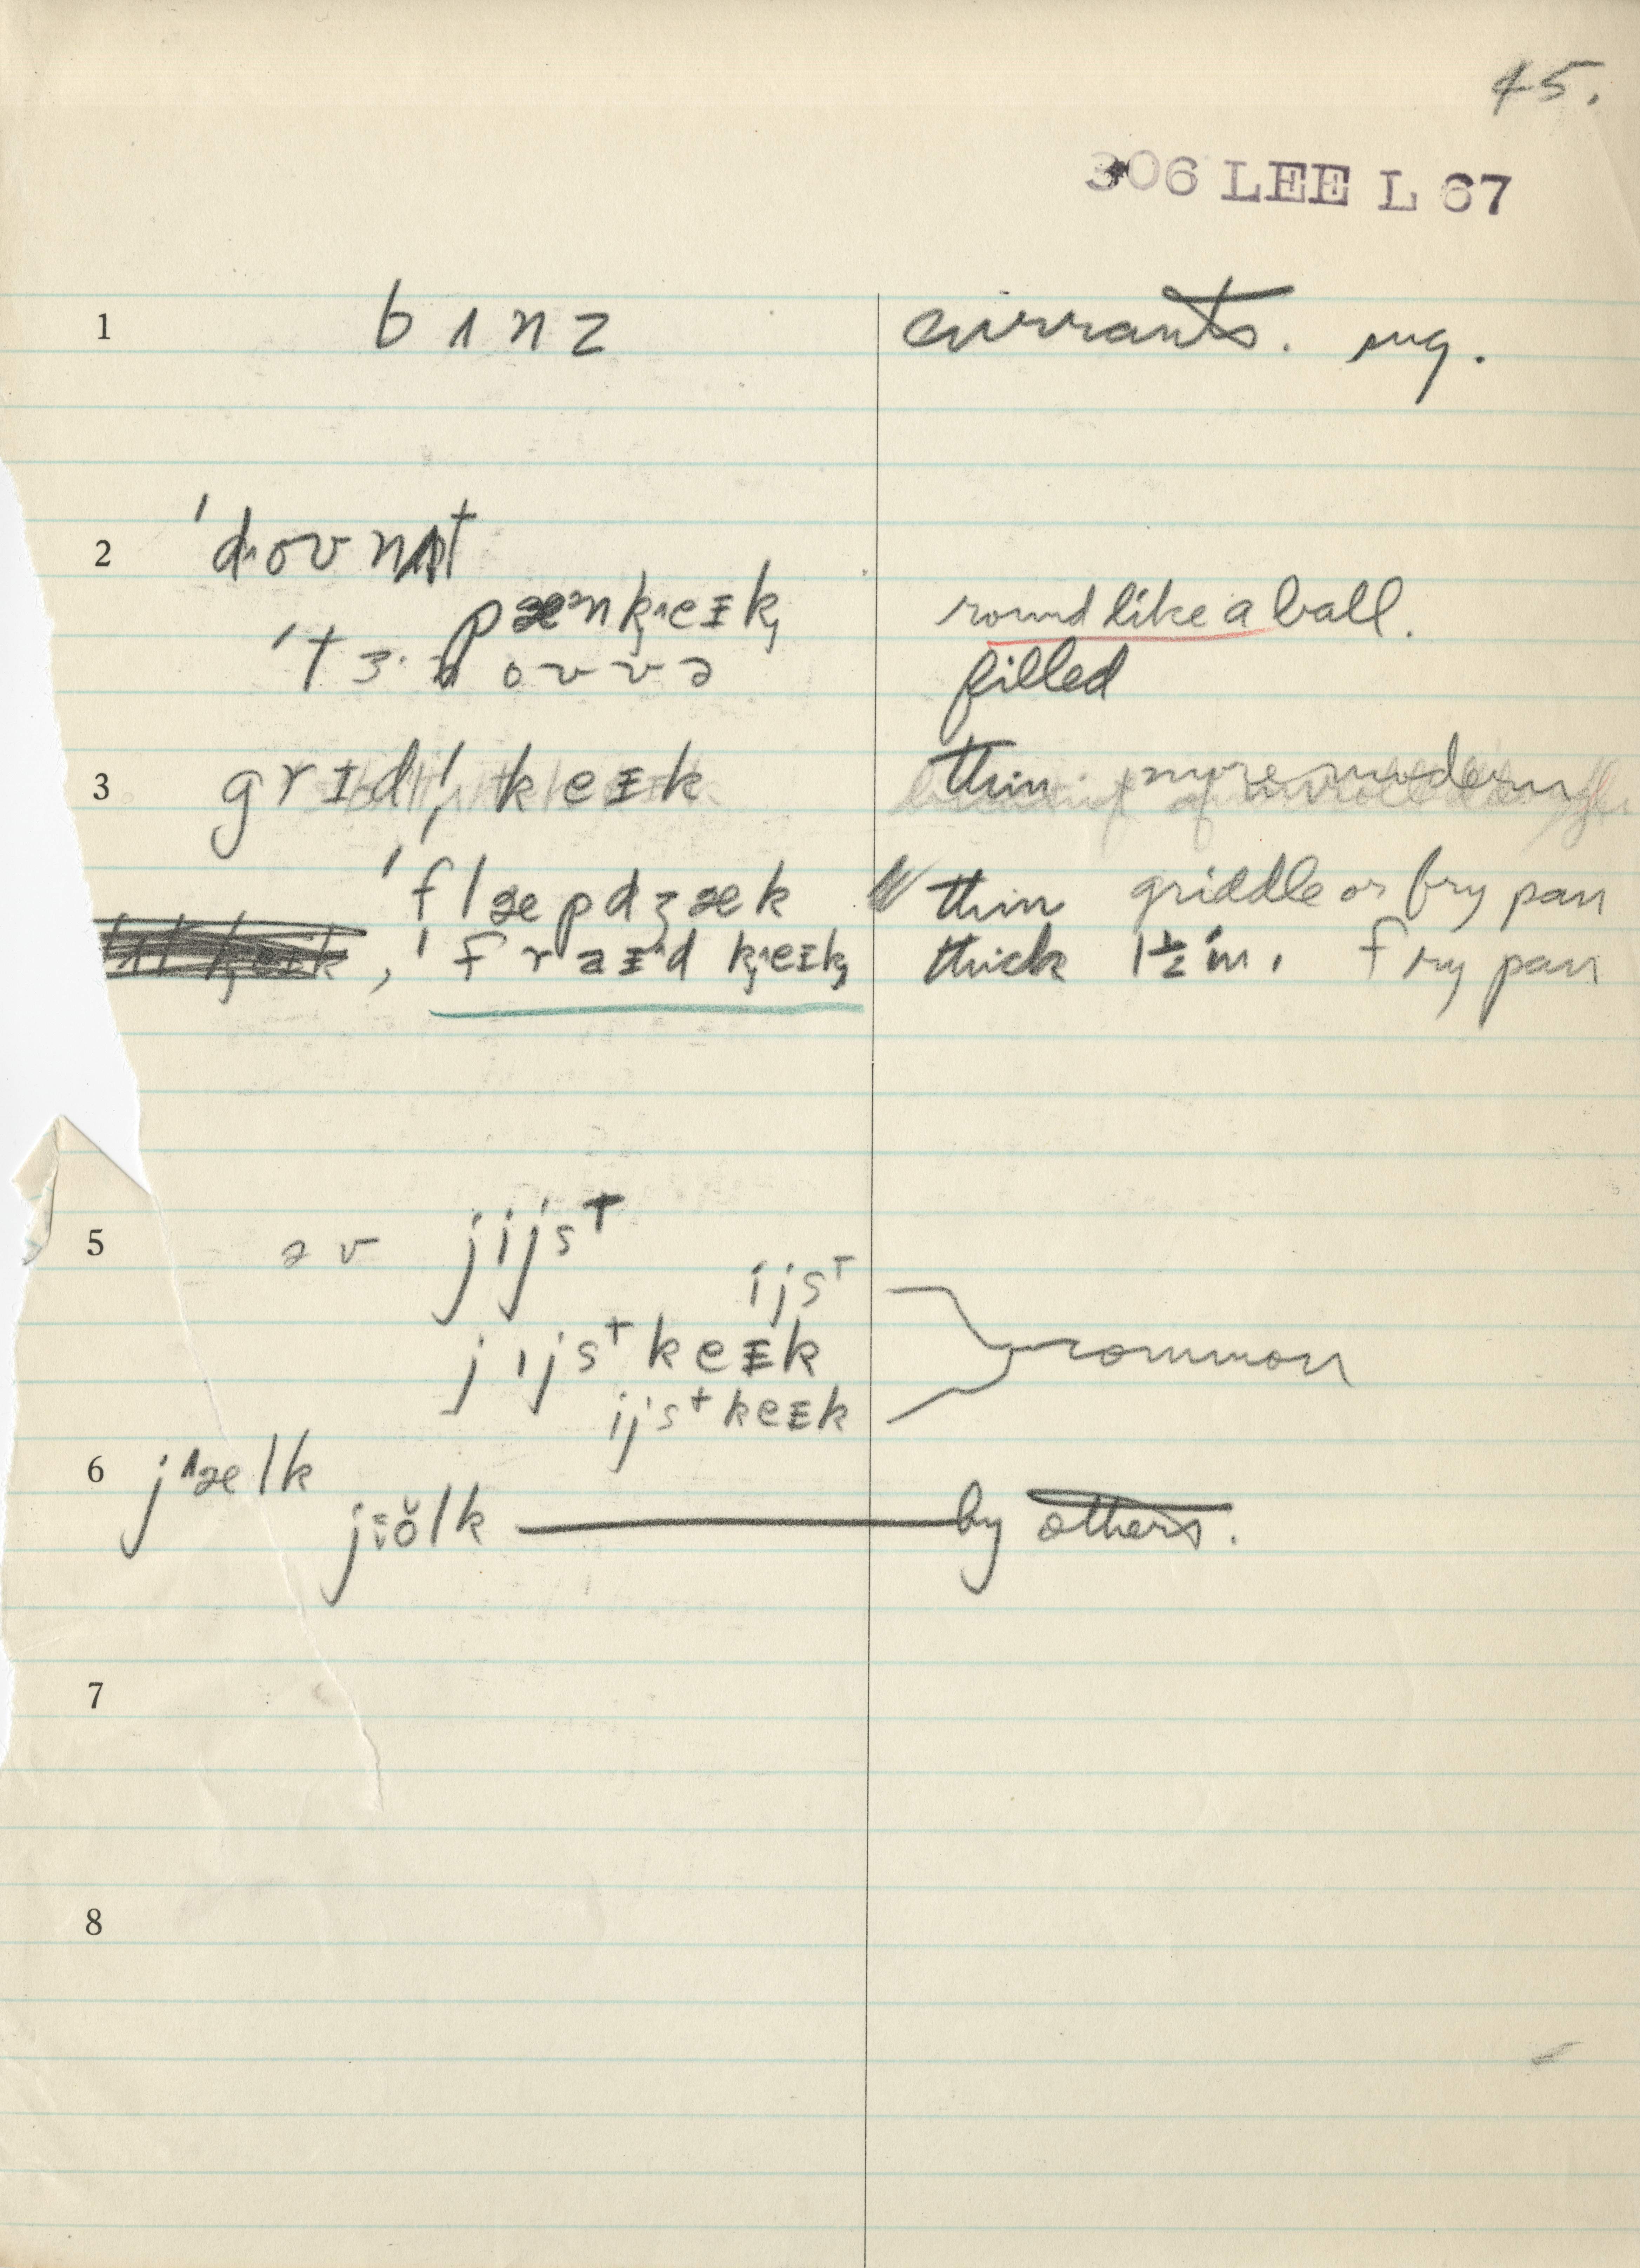 45.
306 LEE L 67
1 b ɪ n z currants. sug.
2 ˈdɹoʊnʌt
pæᵊnk̡ᶦeɪk̡ round like a ball.
ˈtɜ·nˌoʊvə filled
3 grɪdl̩ keɪk thin. more modern
ˈflæpdʒæk thin griddle or fry pan
, ˈfraɪᵊd k̡ᶦeɪk̡ thick 1½ in. fry pan
5 əv jijsᵗ
ijsᵗ
jijsᵗ keɪk common
ijsᵗ keɪk
6 jᶺælk
jɪŏlk by others.
7
8